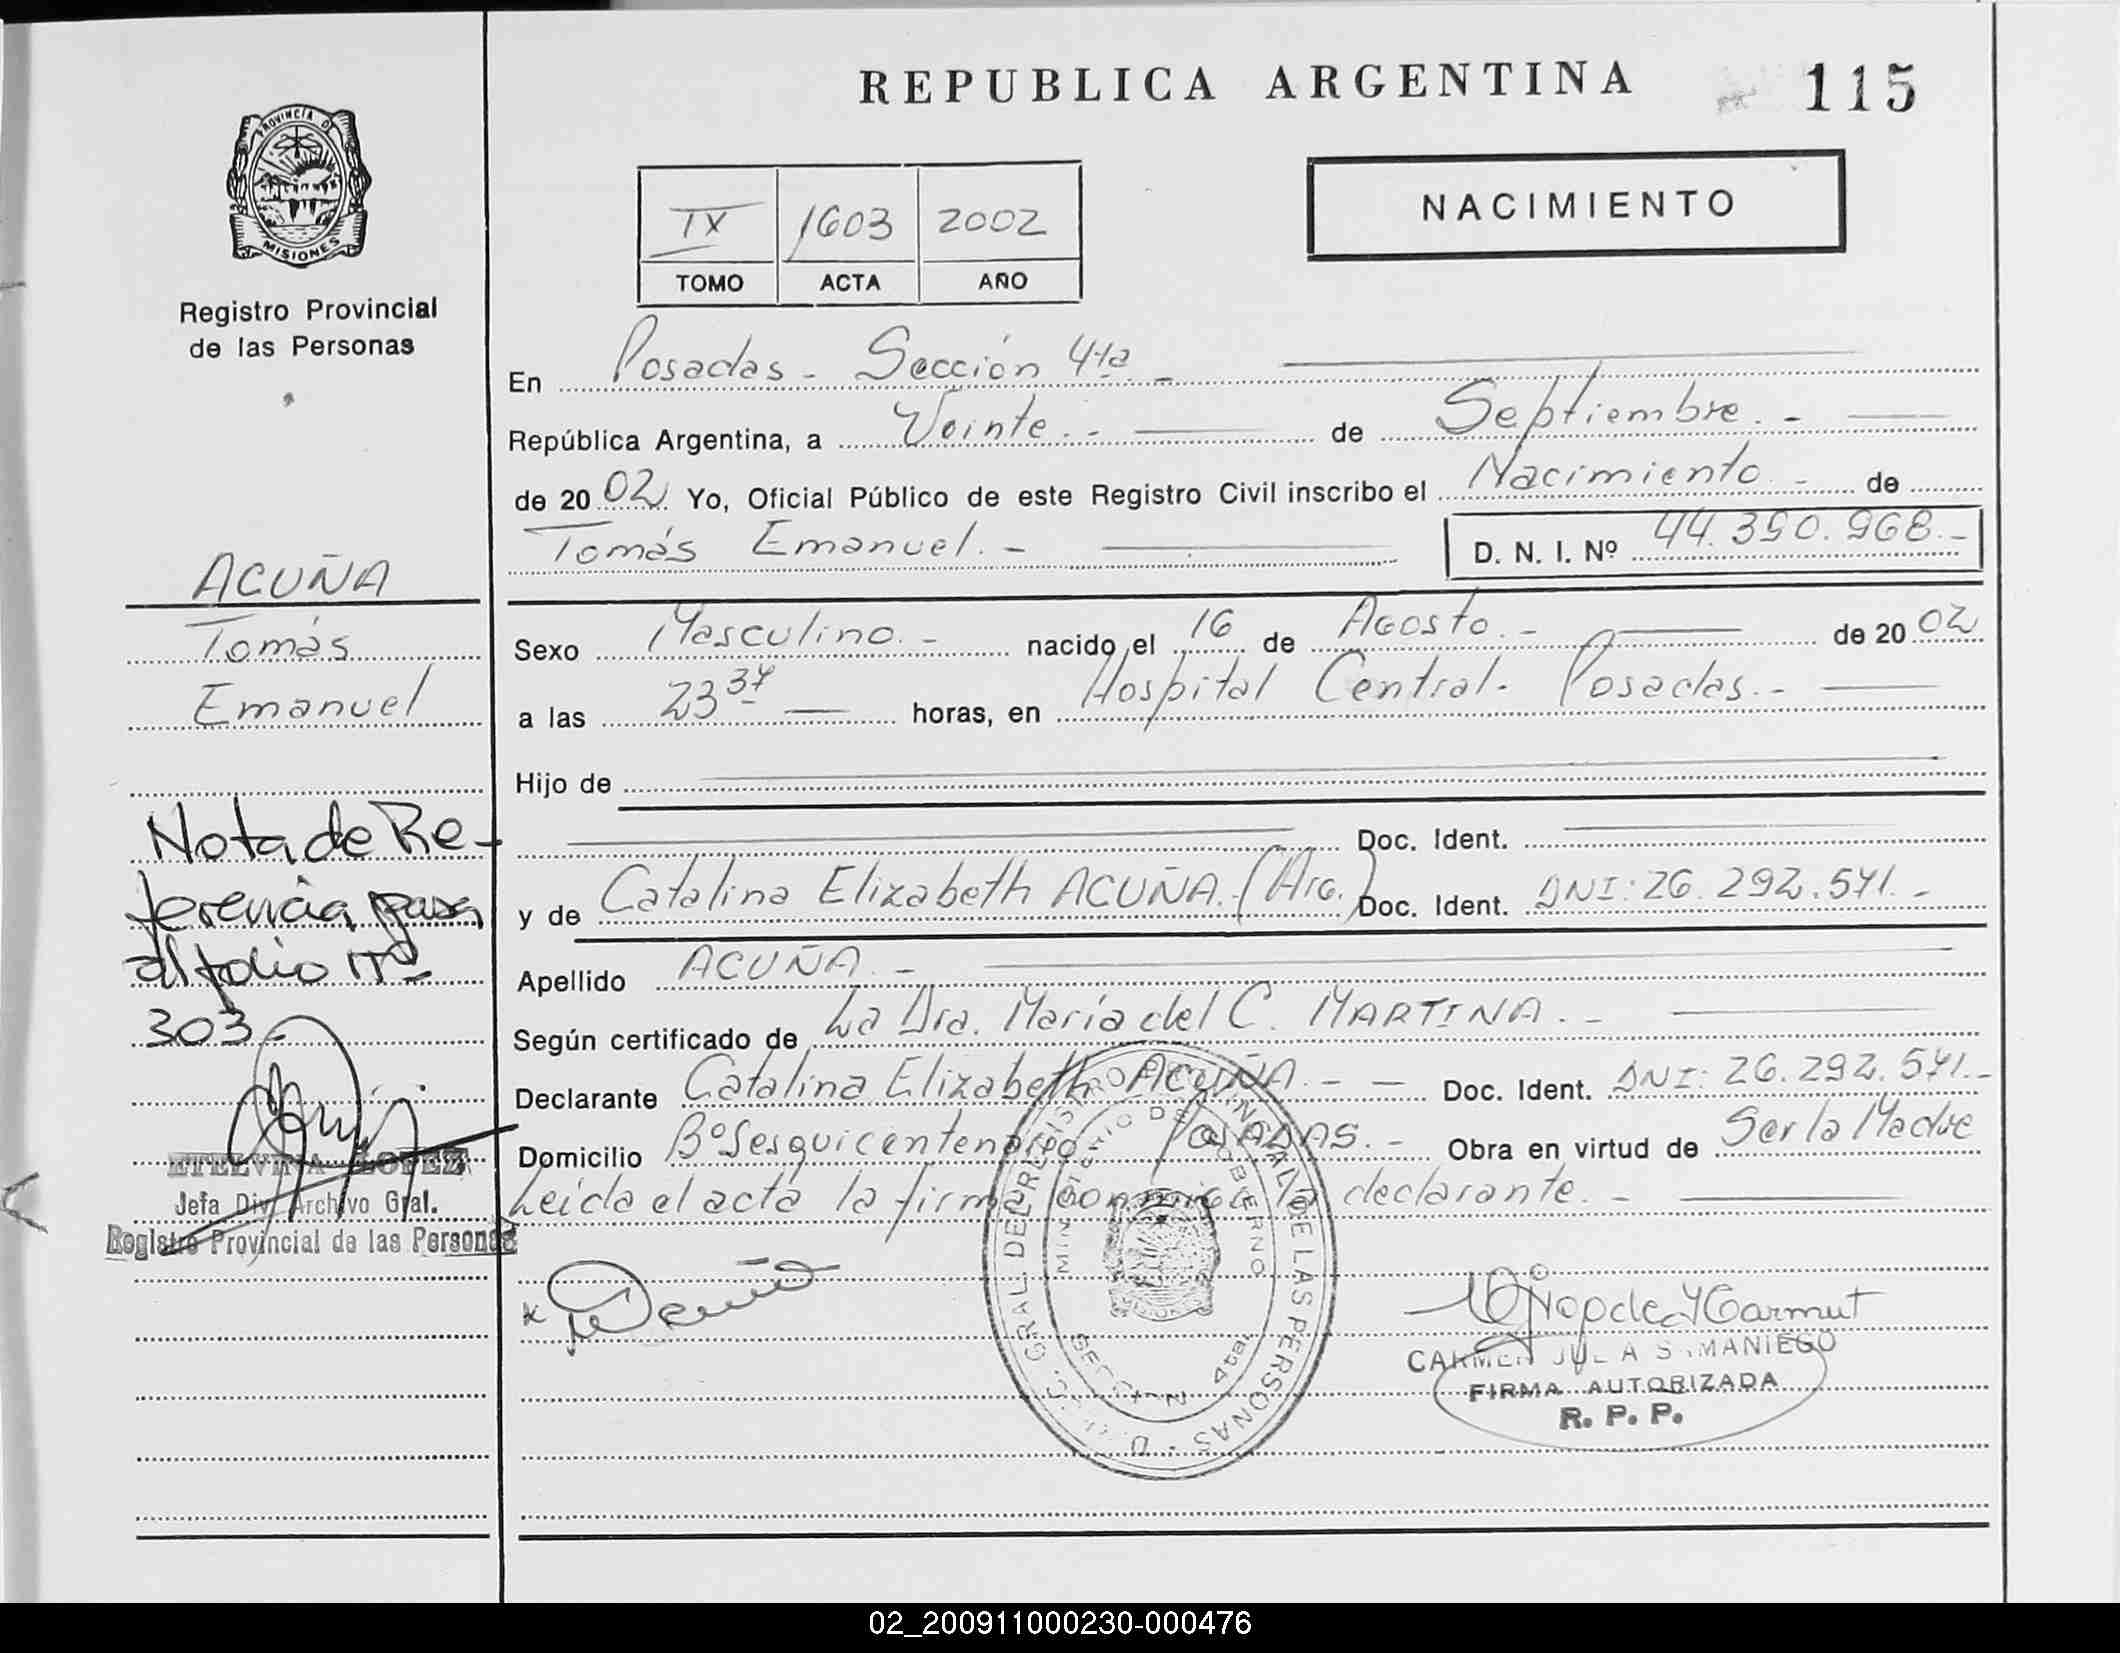 REPUBLICA ARGENTINA
115
PROVINCIA DE
MISIONES
Registro Provincial
de las Personas
IX 1603 2002
TOMO ACTA AÑO
NACIMIENTO
En Posadas - Sección 4ta -
República Argentina, a Veinte. - de Septiembre. -
de 2002 Yo, Oficial Público de este Registro Civil inscribo el Nacimiento - de
Tomás Emanuel. - D. N. I. Nº 44.390.968.-
ACUÑA
Tomás
Emanuel
Sexo Masculino. - nacido el 16 de Agosto. - de 2002
a las 23 37 horas, en Hospital Central. Posadas. -
Hijo de
Doc. Ident.
y de Catalina Elizabeth ACUÑA.- (Arg.) Doc. Ident. DNI: 26.292.571. -
Apellido ACUÑA. -
Según certificado de La Dra. María del C. MARTINA. -
Declarante Catalina Elizabeth ACUÑA. - - Doc. Ident. DNI: 26.292.571.-
Domicilio Bº Sesquicentenario POSADAS. - Obra en virtud de Ser la Madre
Leída el acta la firma conmigo la declarante. -
Nota de Re-
ferencia pasa
al folio Nº
303-
ETELVINA LOPEZ
Jefa Div. Archivo Gral.
Registro Provincial de las Personas
GRAL. DEL REGISTRO PROVINCIAL DE LAS PERSONAS
MINISTERIO DE GOBIERNO
SECCION 4ta.
CARMEN JULIA SAMANIEGO
FIRMA AUTORIZADA
R. P. P.
02_200911000230-000476